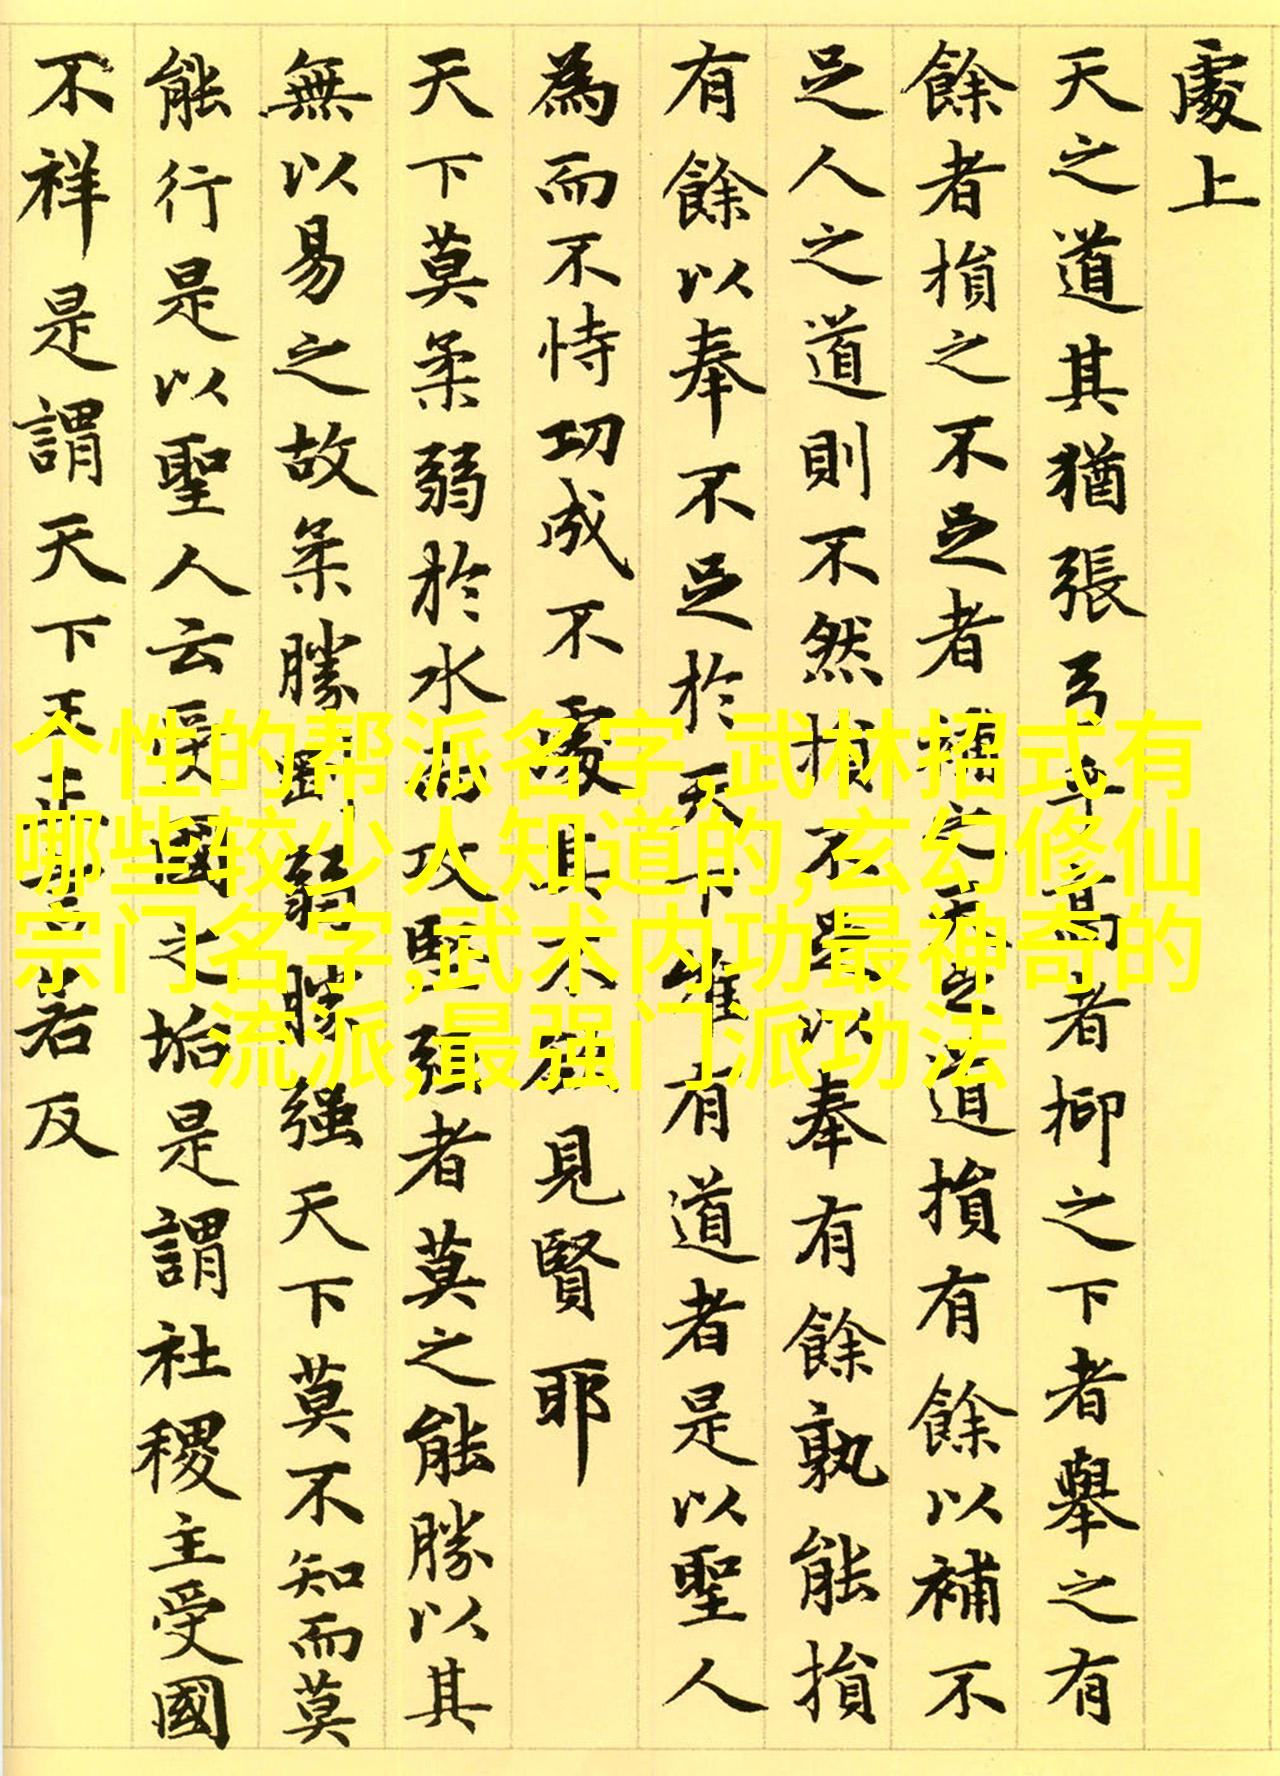 處上
天之道其猶張弓乎高者抑之下者舉之有
餘者損之不足者補之天之道損有餘以補不
足人之道則不然損不足以奉有餘孰能損
有餘以奉不足於天下唯有道者是以聖人
為而不恃功成不處其不欲見賢耶
天下莫柔弱於水而攻堅强者莫之能勝以其
無以易之故柔勝剛弱勝强天下莫不知而莫
能行是以聖人云受國之垢是謂社稷主受國
不祥是謂天下王正言若反
个性的帮派名字,武林招式有
哪些较少人知道的,玄幻修仙
宗门名字,武术内功最神奇的
流派,最强门派功法